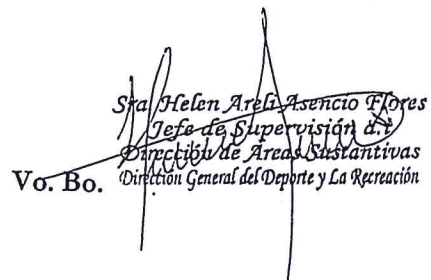 Sra. Helen Areli Asencio Flores
Jefe de Supervisión a.i.
Dirección de Áreas Sustantivas
Vo. Bo. Dirección General del Deporte y La Recreación